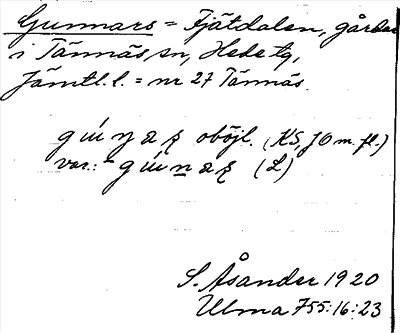 Gunnars = Fjätdalen, gårdar
i Tännäs sn, Hede tg,
Jämtl. l. = nr 27 Tännäs.
oböjl. (KS, JO m. fl.)
var.: - (L)
S. Åsander 1920
Ulma 755:16:23